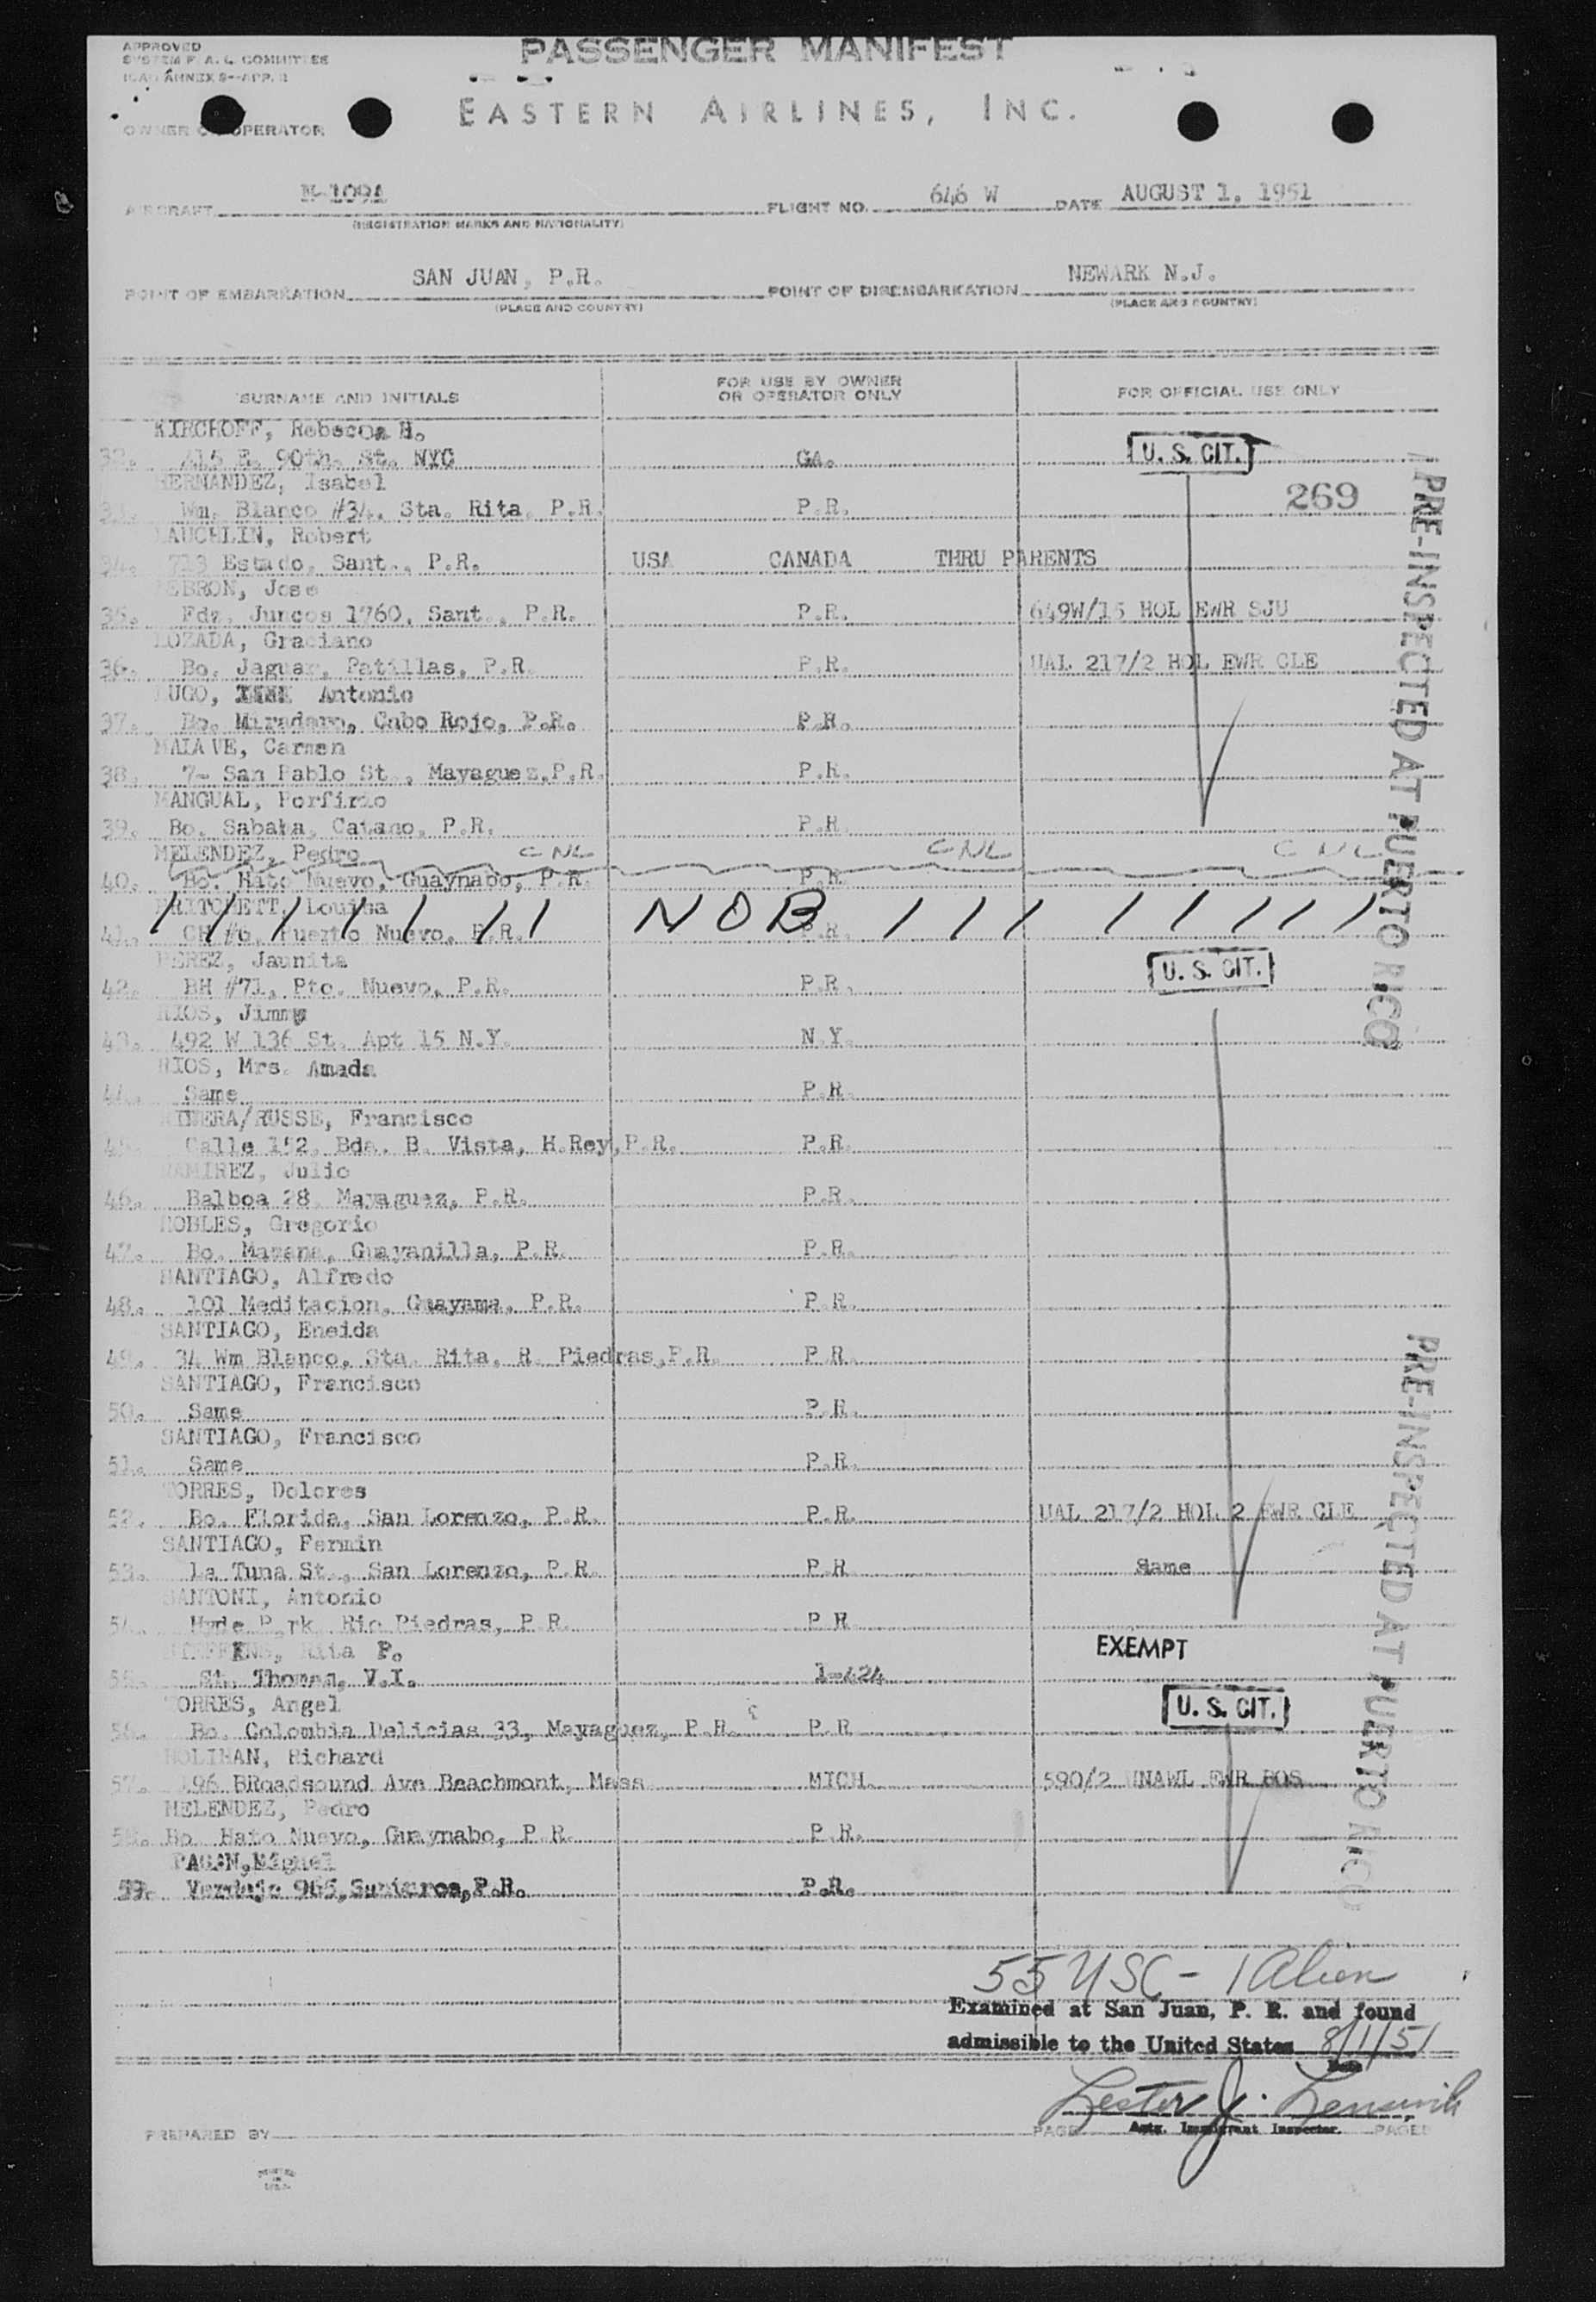 APPROVED
PASSENGER MANIFEST
EASTERN AIRLINES, INC.
OWNER OR OPERATOR
AIRCRAFT N-109A FLIGHT NO. 646 W DATE AUGUST 1, 1951
(REGISTRATION MARKS AND NATIONALITY)
POINT OF EMBARKATION SAN JUAN, P.R. POINT OF DISEMBARKATION NEWARK N.J.
(PLACE AND COUNTRY) (PLACE AND COUNTRY)
SURNAME AND INITIALS FOR USE BY OWNER OR OPERATOR ONLY FOR OFFICIAL USE ONLY
KIRCHOFF, Rebecca H.
32. 415 E. 90th. St. NYC GA. U. S. CIT.
HERNANDEZ, Isabel
33. Wm. Blanco #34, Sta. Rita, P.R. P.R. 269
LAUCHLIN, Robert
34. 713 Estado, Sant., P.R. USA CANADA THRU PARENTS
LEBRON, Jose
35. Fdz. Juncos 1760, Sant., P.R. P.R. 649W/15 HOL EWR SJU
LOZADA, Graciano
36. Bo. Jaguar, Patillas, P.R. P.R. UAL 217/2 HOL EWR CLE
LUGO, Antonio
37. Bo. Miradero, Cabo Rojo, P.R. P.R.
MALAVE, Carmen
38. 7- San Pablo St., Mayaguez, P.R. P.R.
MANGUAL, Porfirio
39. Bo. Sabana, Catano, P.R. P.R.
MELENDEZ, Pedro CNL CNL CNL
40. Bo. Hato Nuevo, Guaynabo, P.R. P.R.
PRITCHETT, Louisa
41. CH #6, Puerto Nuevo, P.R. NOB P.R.
PEREZ, Jaunita
42. BH #71, Pto. Nuevo, P.R. P.R. U. S. CIT.
RIOS, Jimmy
43. 492 W 136 St. Apt 15 N.Y. N.Y.
RIOS, Mrs. Amada
44. Same P.R.
RIVERA/RUSSE, Francisco
45. Calle 152, Bda. B. Vista, H.Rey, P.R. P.R.
RAMIREZ, Julio
46. Balboa 28, Mayaguez, P.R. P.R.
ROBLES, Gregorio
47. Bo. Guayanilla, P.R. P.R.
SANTIAGO, Alfredo
48. 101 Meditacion, Guayama, P.R. P.R.
SANTIAGO, Eneida
49. 34 Wm Blanco, Sta. Rita, R. Piedras, P.R. P.R.
SANTIAGO, Francisco
50. Same P.R.
SANTIAGO, Francisco
51. Same P.R.
TORRES, Dolores
52. Bo. Florida, San Lorenzo, P.R. P.R. UAL 217/2 HOL 2 EWR CLE
SANTIAGO, Fermin
53. La Tuna St., San Lorenzo, P.R. P.R. Same
SANTONI, Antonio
54. Hyde Park Rio Piedras, P.R. P.R.
Rita P. EXEMPT
55. St. Thomas, V.I. 1-424
TORRES, Angel
56. Bo. Colombia Delicias 33, Mayaguez, P.R. P.R. U. S. CIT.
HOLIHAN, Richard
57. 196 BRoadsound Ave Beachmont, Mass MICH. 590/2 UNAWL EWR BOS
MELENDEZ, Pedro
58. Bo. Hato Nuevo, Guaynabo, P.R. P.R.
PAGAN, Miguel
59. Verdejo 965, Santurce, P.R. P.R.
PRE-INSPECTED AT PUERTO RICO
PRE-INSPECTED AT PUERTO RICO
55 USC - 1 Alien
Examined at San Juan, P. R. and found
admissible to the United States 8/1/51
Date
Lester J.
PREPARED BY PAGE Actg. Immigrant Inspector. PAGES
PRINTED
IN
U.S.A.